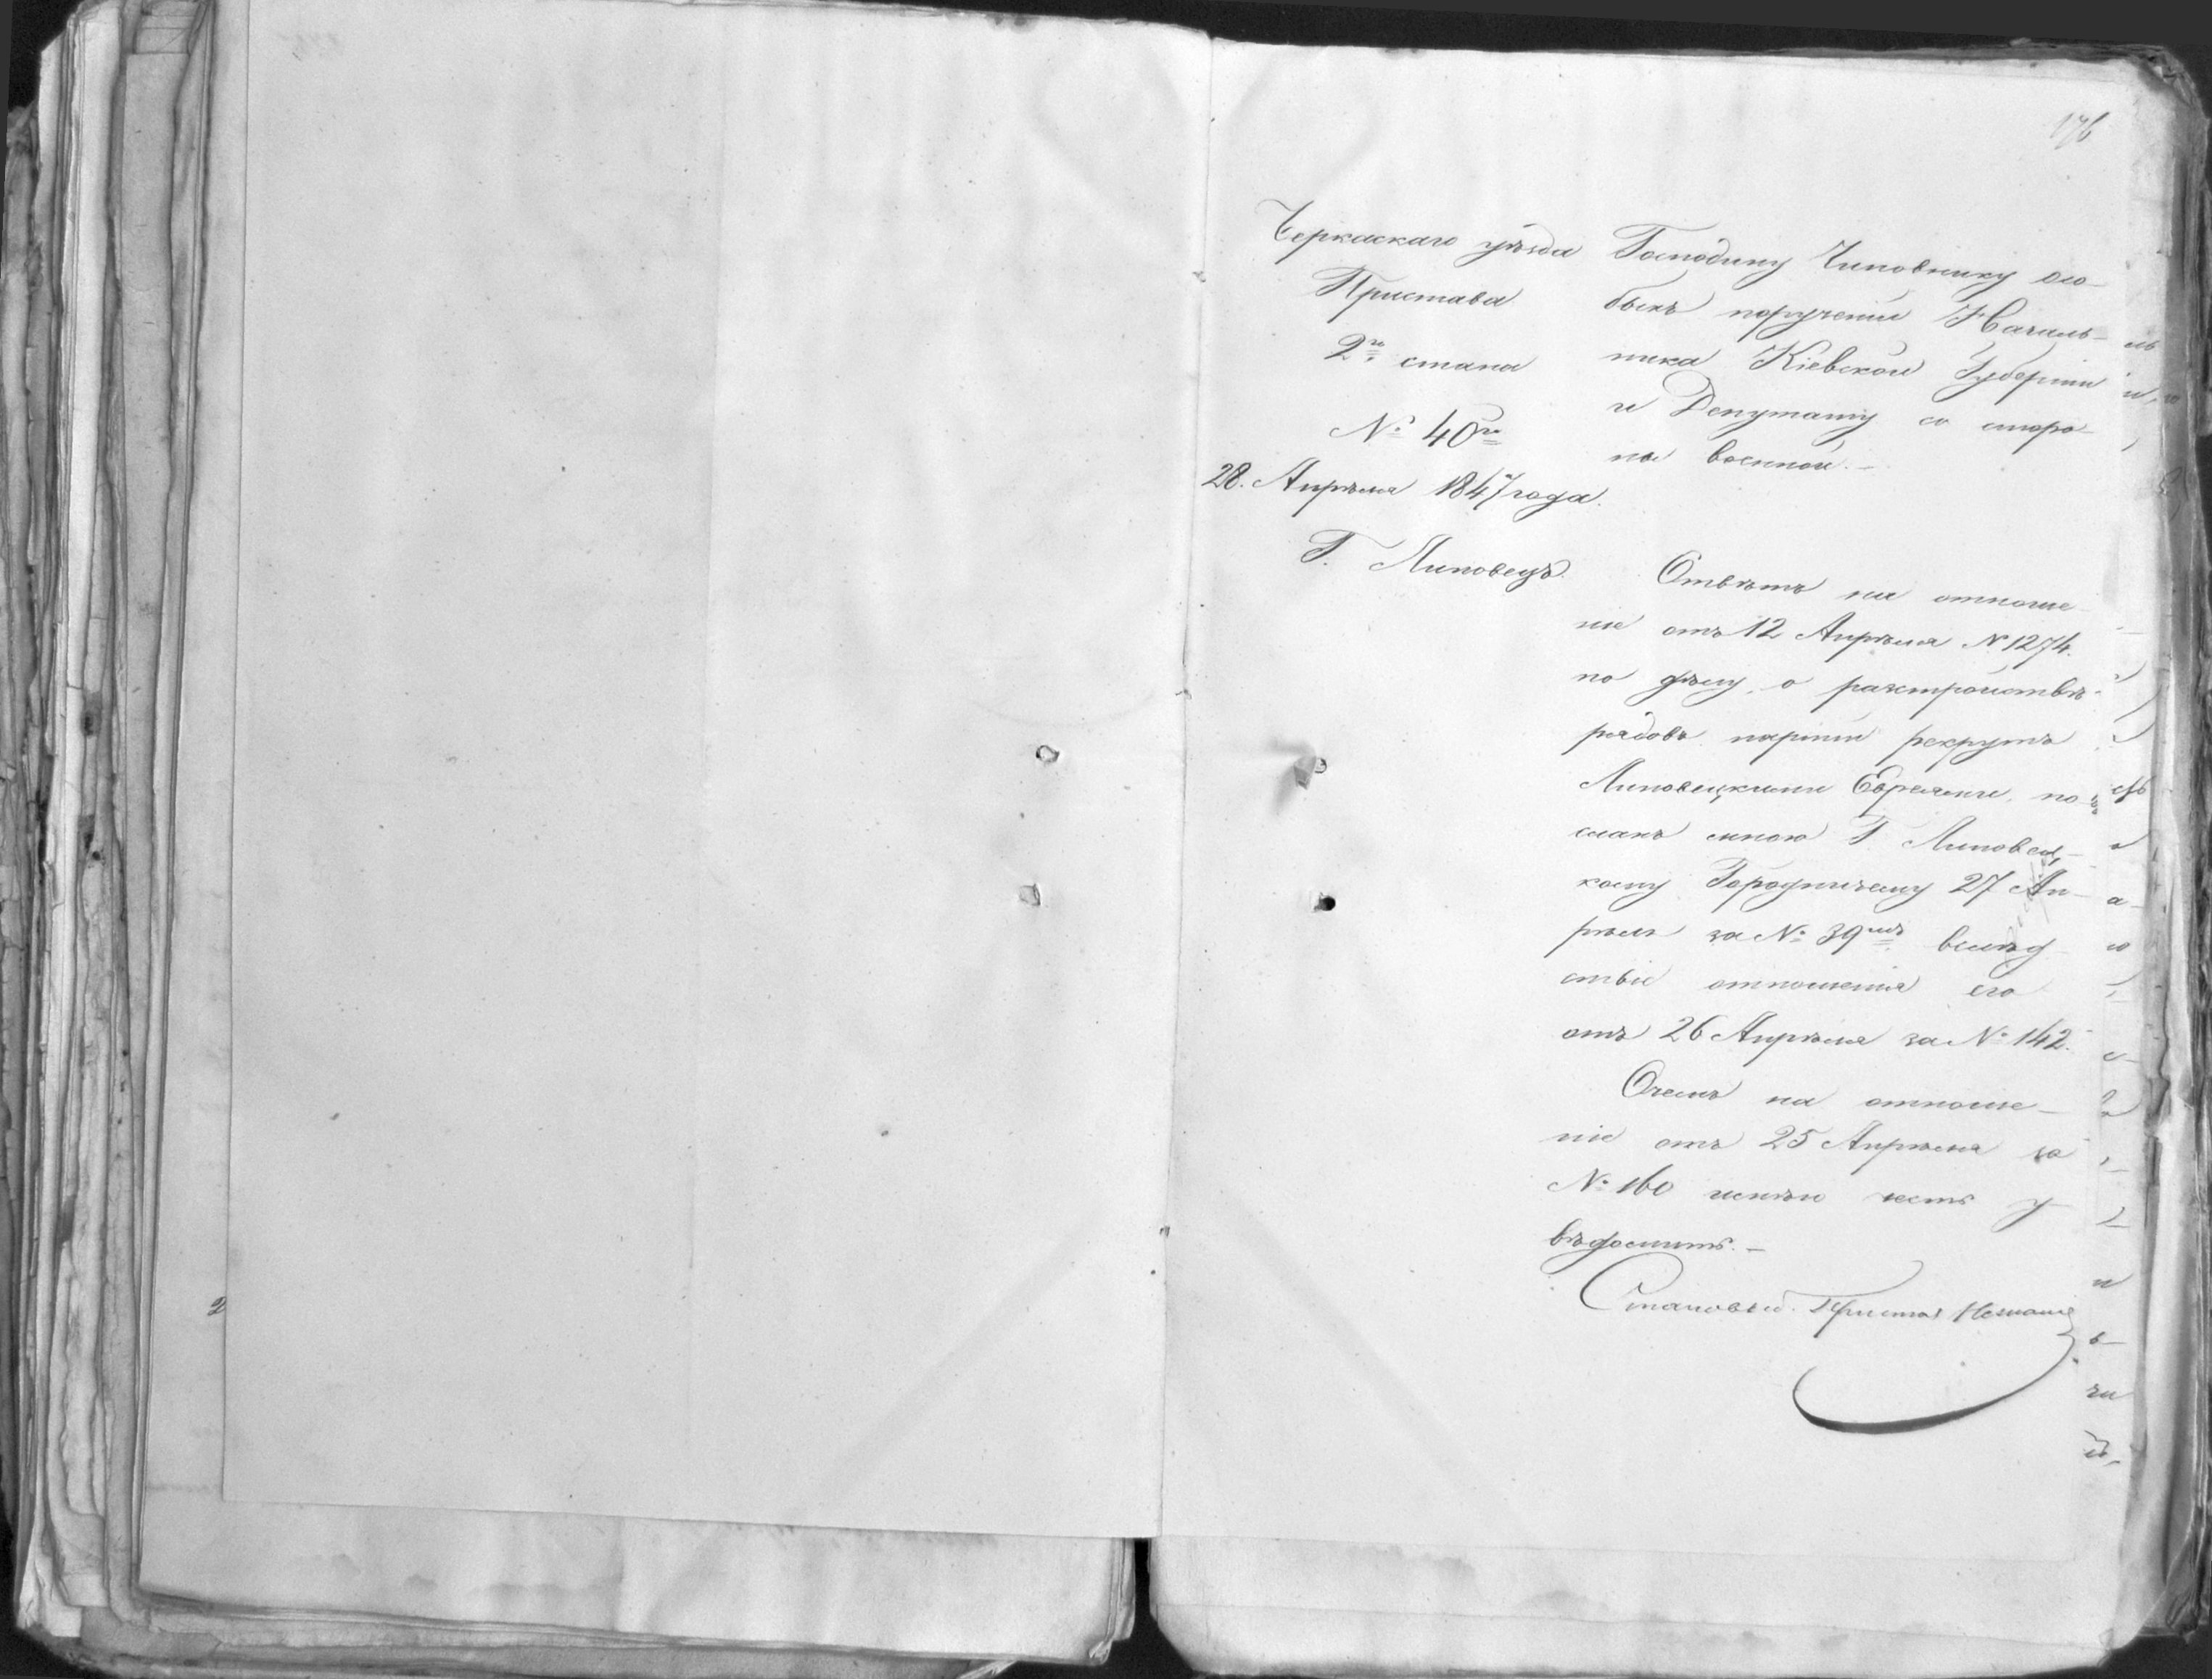 176
Черкаскаго уѣзда
Пристава
2го стана
№ 40го
28. Апрѣля 1847 года.
Г. Липовецъ.
Господину Чиновнику осо-
быхъ порученій Началь-
ника Кіевской Губерніи
и Депутату со сторо-
ны военной.—
Отвѣтъ на отноше-
ніе отъ 12 Апрѣля № 1274.
по дѣлу о разстройствѣ
рядовъ партіи рекрутъ
Липовецкими Евреями, по-
сланъ мною Г. Липовец-
кому Городничему 27 Ап-
рѣля за № 39мъ вслѣд-
ствіе отношенія его
отъ 26 Апрѣля за № 142.
О чемъ на отноше-
ніе отъ 25 Апрѣля за
№ 160 имѣю честь у-
вѣдомить.—
Становый Приставъ